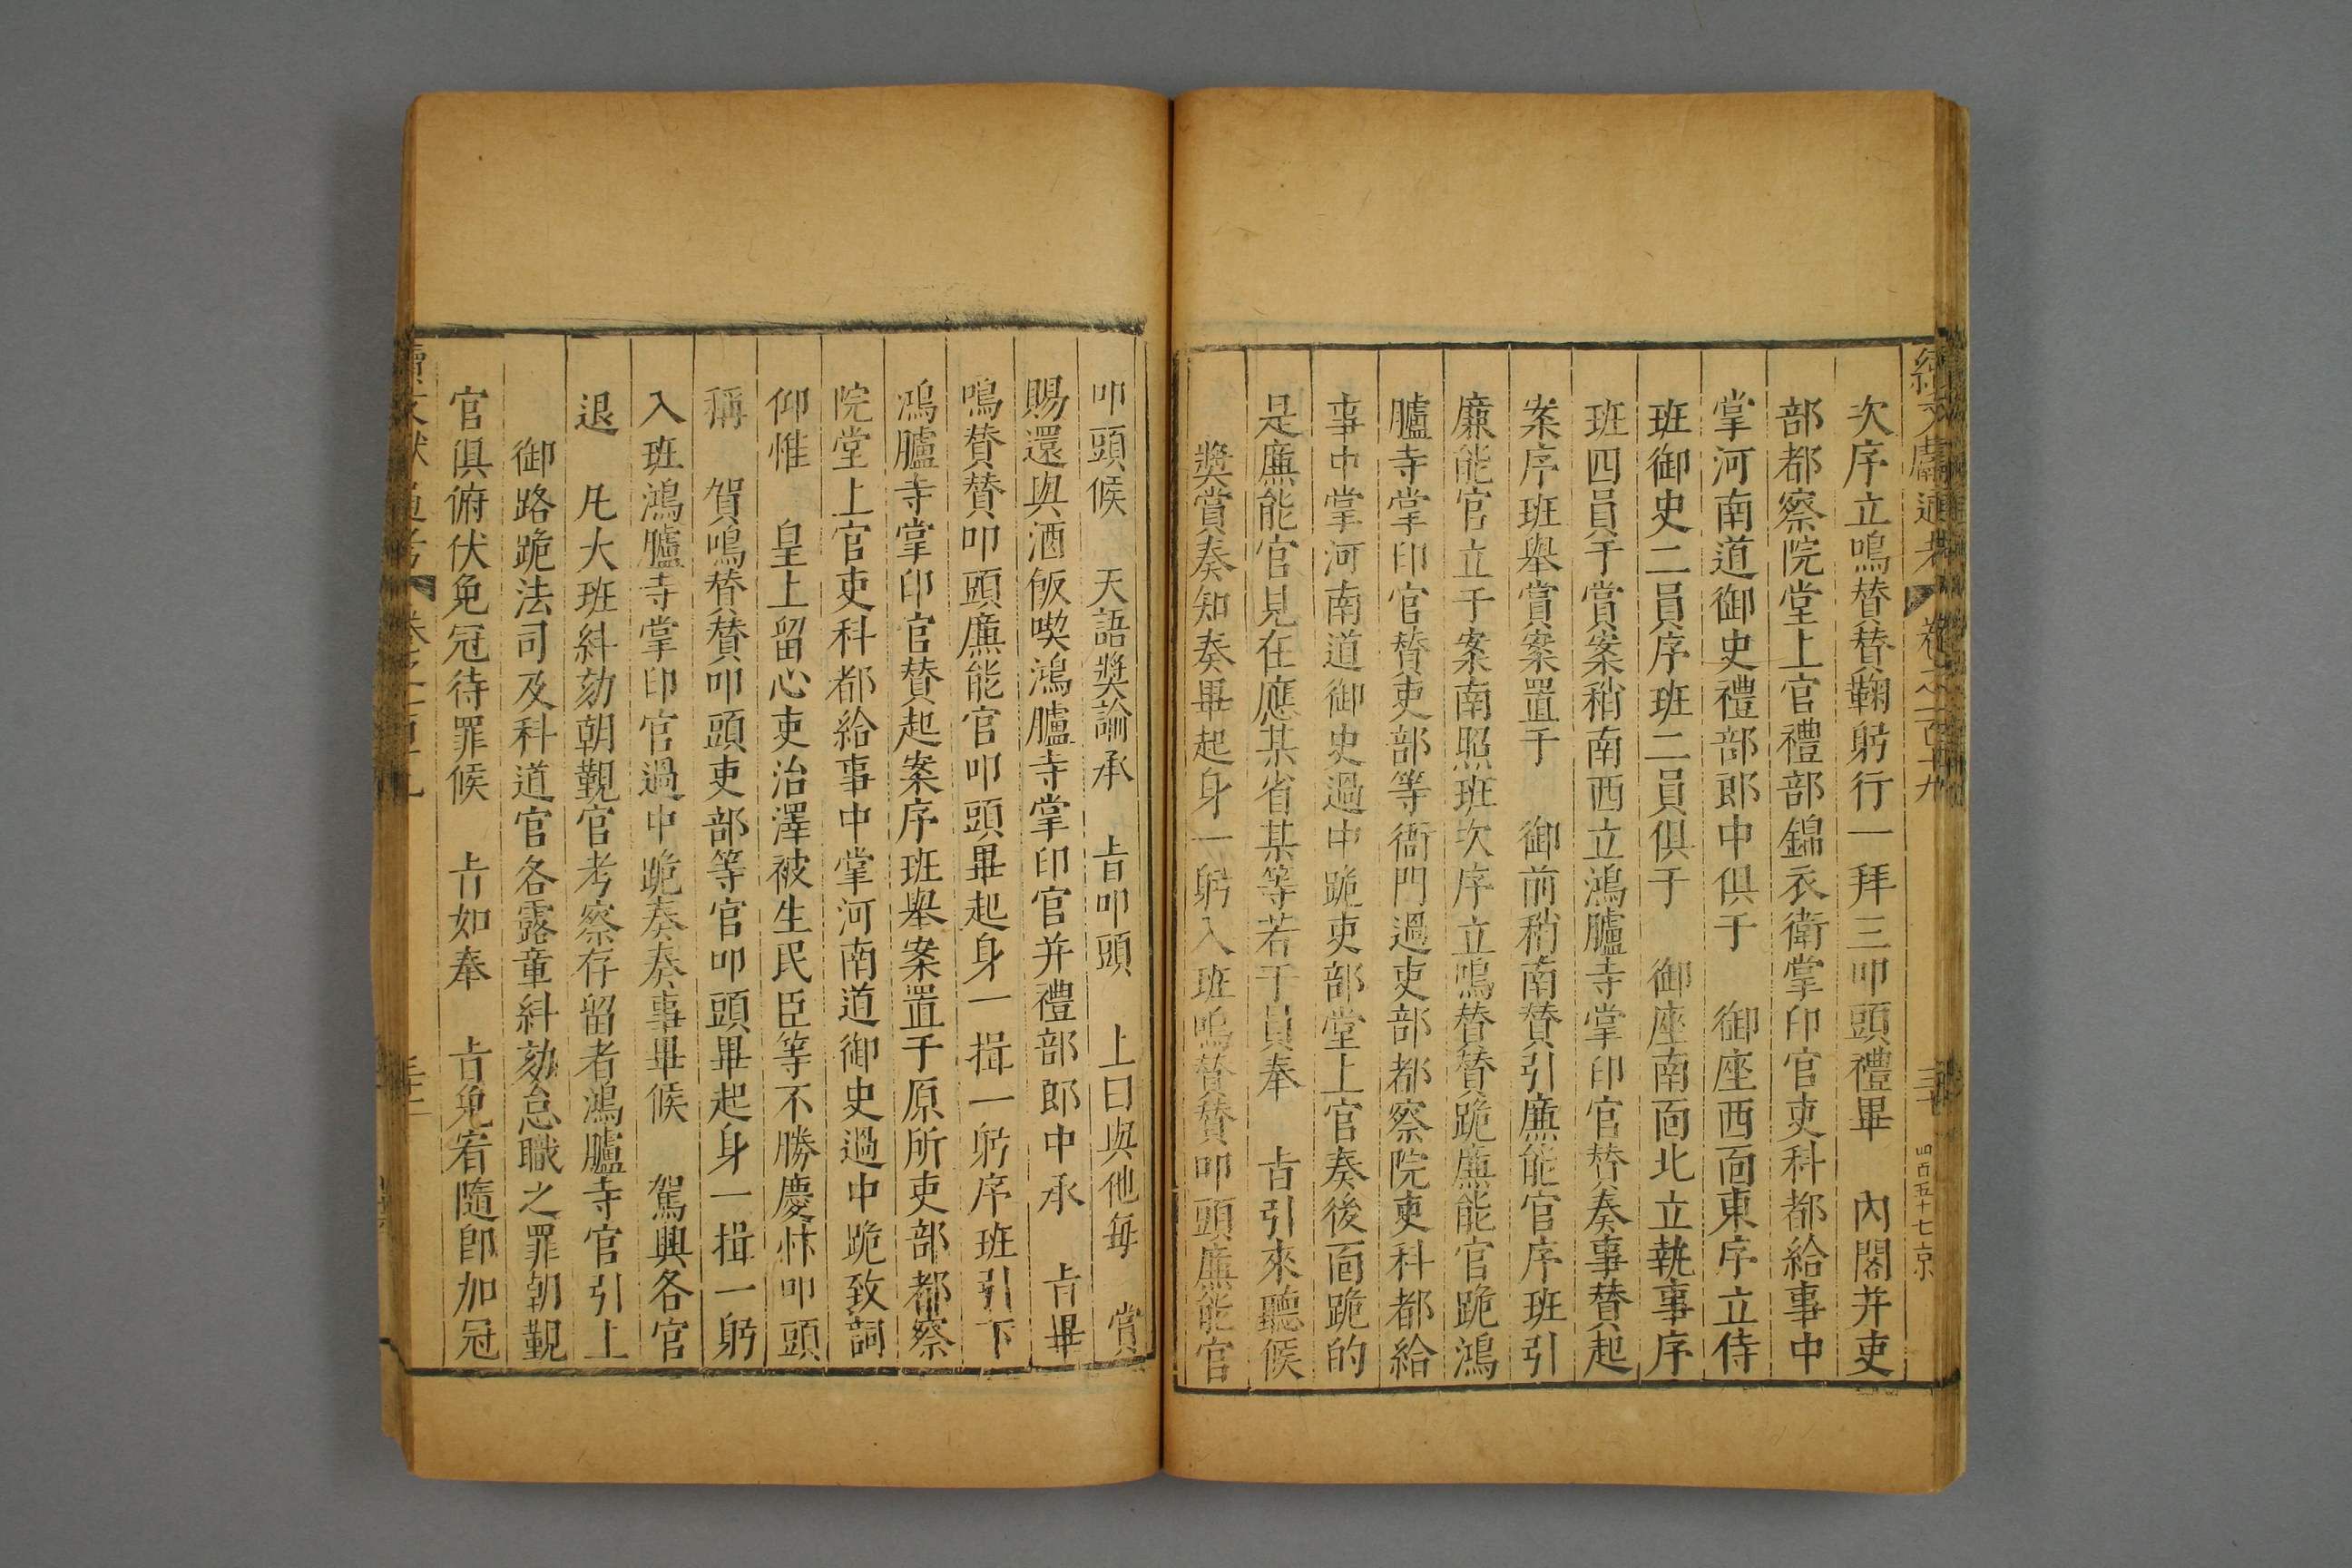 續文獻通考 卷之一百十九 三十 四百五十七 京
次序立鳴贊贊鞠躬行一拜三叩頭禮畢 內閣并吏
部都察院堂上官禮部錦衣衛掌印官吏科都給事中
掌河南道御史禮部郎中俱于 御座西面東序立侍
班御史二員序班二員俱于 御座南面北立執事序
班四員于賞案稍南西立鴻臚寺掌印官贊奏事贊起
案序班舉賞案置于 御前稍南贊引廉能官序班引
廉能官立于案南照班次序立鳴贊贊跪廉能官跪鴻
臚寺掌印官贊吏部等衙門過吏部都察院吏科都給
事中掌河南道御史過中跪吏部堂上官奏後面跪的
是廉能官見在應某省某等若干員奉 旨引來聽候
獎賞奏知奏畢起身一躬入班鳴贊贊叩頭廉能官
叩頭候 天語獎諭承 旨叩頭 上曰與他每 賞
賜還與酒飯喫鴻臚寺掌印官并禮部郎中承 旨畢
鳴贊贊叩頭廉能官叩頭畢起身一揖一躬序班引下
鴻臚寺掌印官贊起案序班舉案置于原所吏部都察
院堂上官吏科都給事中掌河南道御史過中跪致詞
仰惟 皇上留心吏治澤被生民臣等不勝慶忭叩頭
稱 賀鳴贊贊叩頭吏部等官叩頭畢起身一揖一躬
入班鴻臚寺掌印官過中跪奏奏事畢候 駕興各官
退 凡大班糾劾朝覲官考察存留者鴻臚寺官引上
御路跪法司及科道官各露章糾劾怠職之罪朝覲
官俱俯伏免冠待罪候 旨如奉 旨免宥隨即加冠